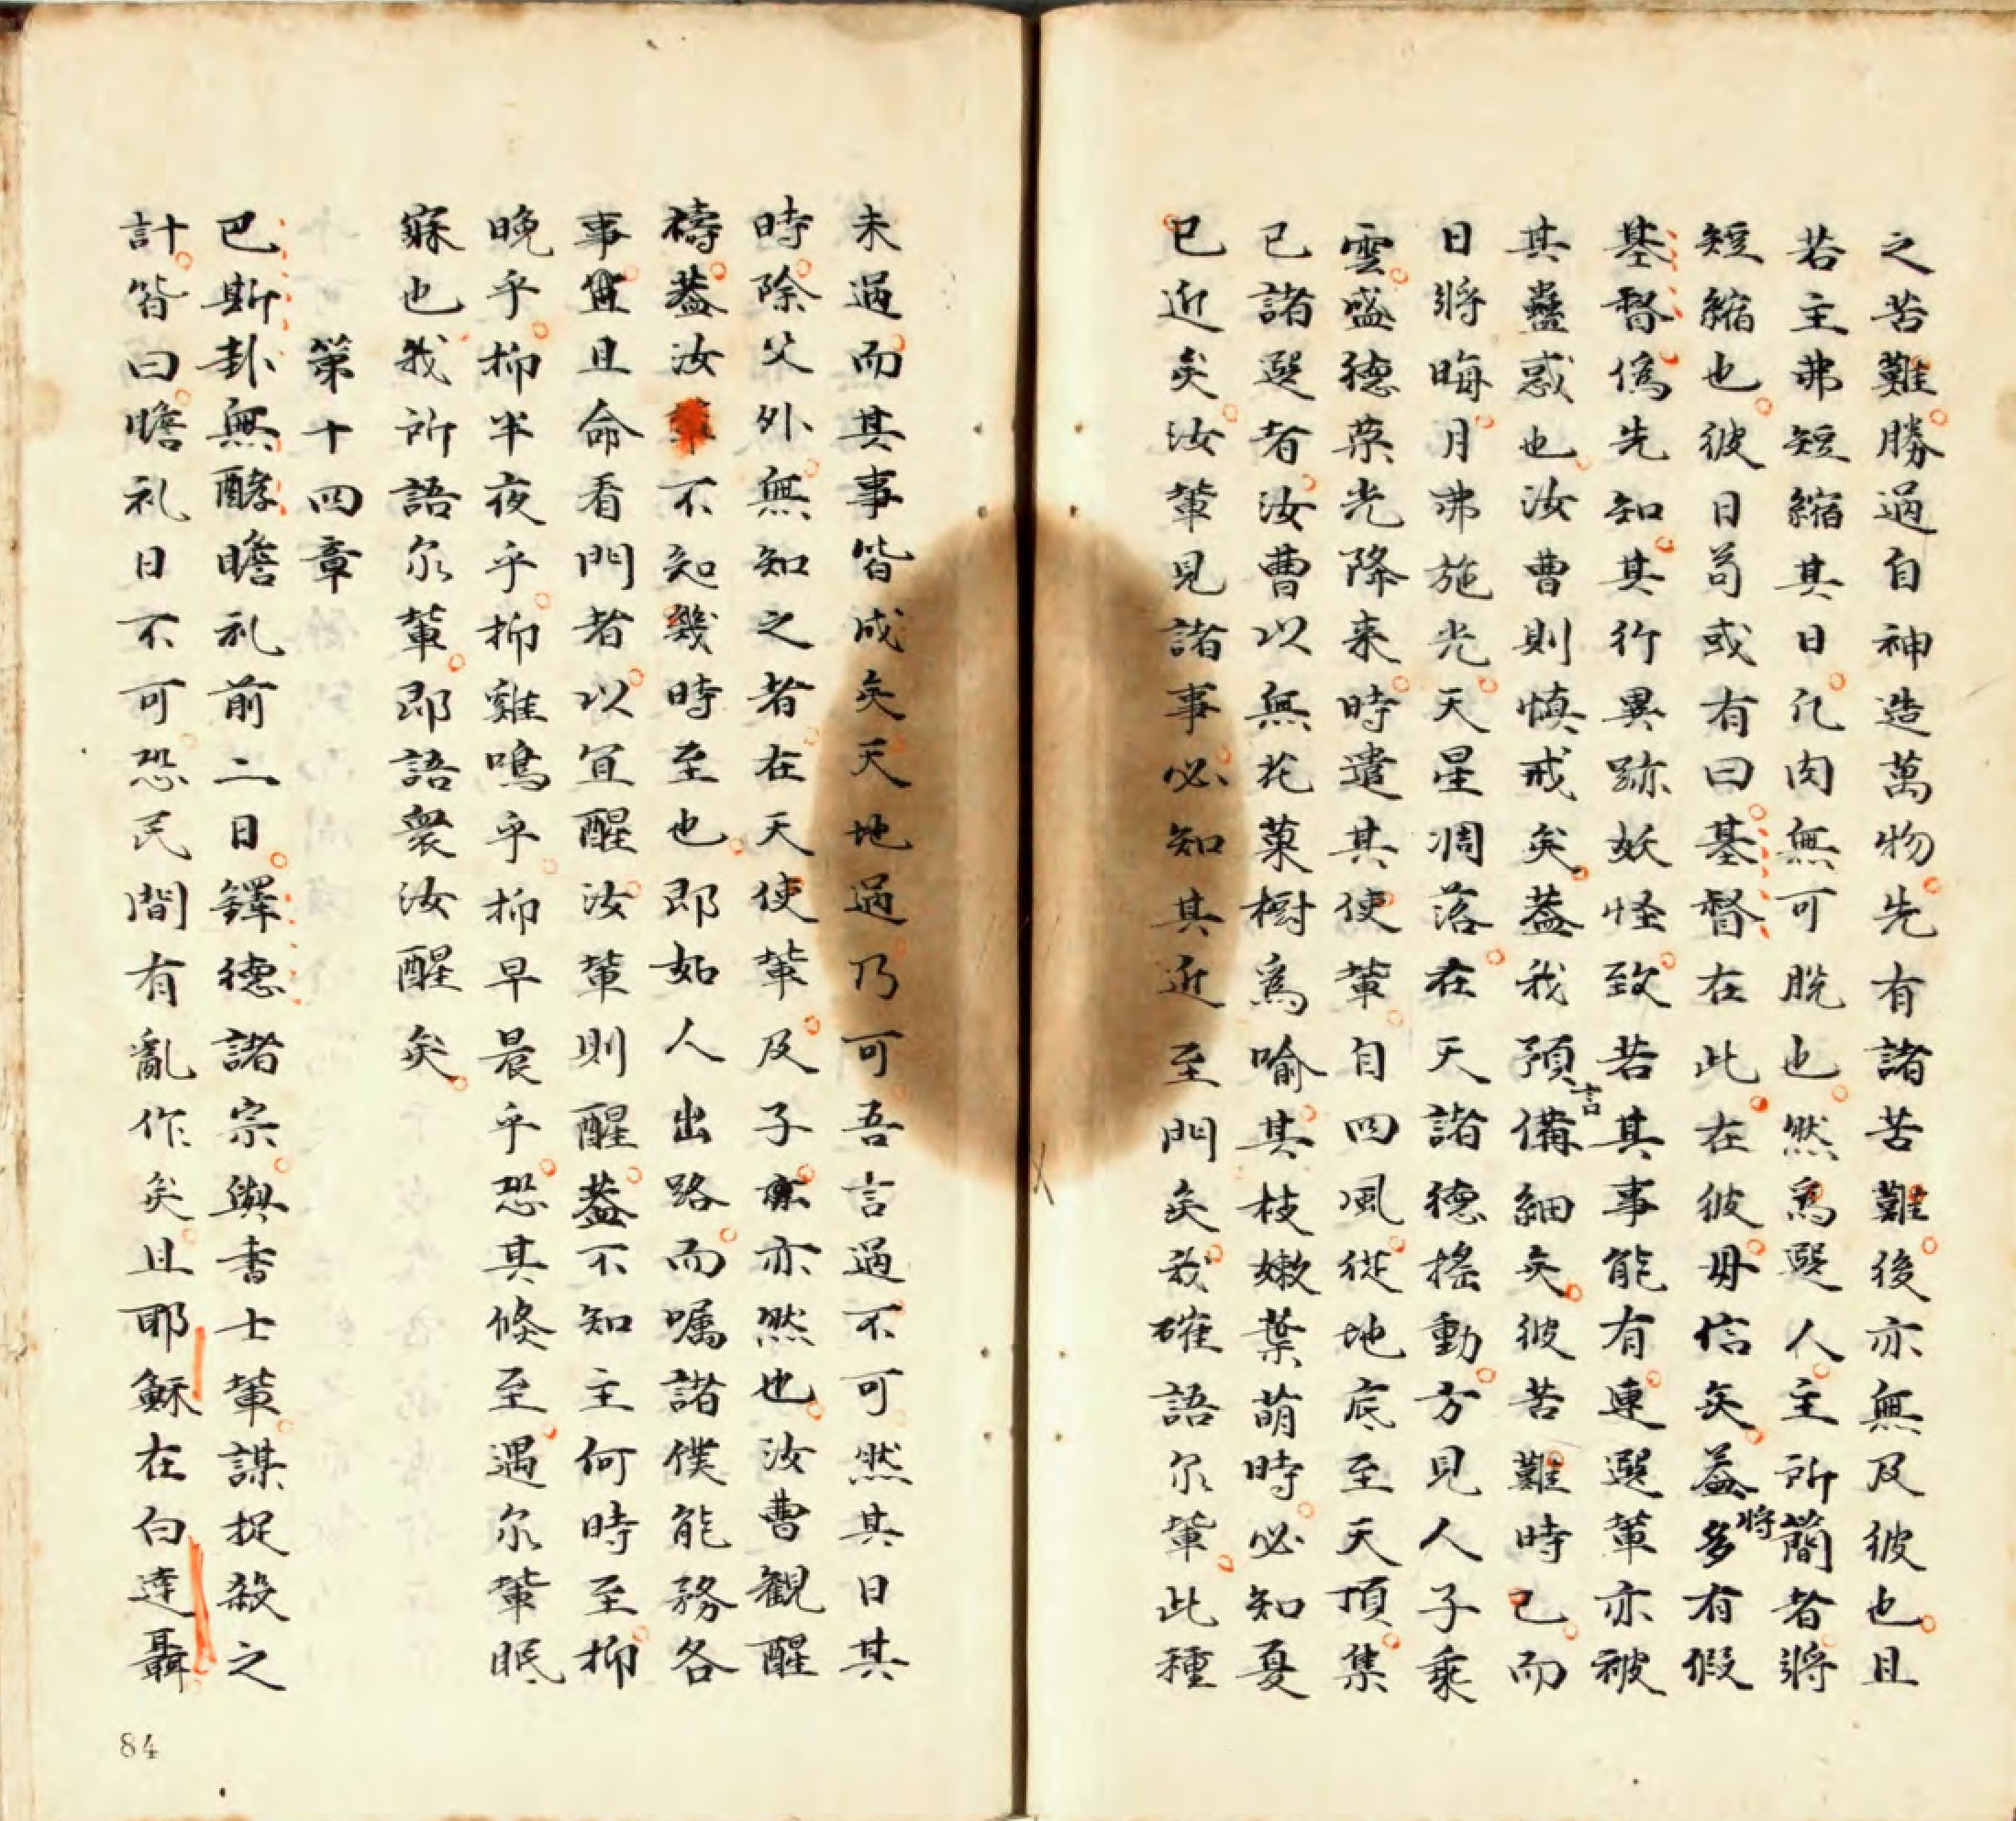 之苦難勝過自神造萬物先有諸苦難後亦無及彼也且
若主弗短縮其日凢肉無可脫也然為選人主所簡者將
短縮也彼日苟或有曰基督在此在彼毋信矣蓋多將有假
基督偽先知其行異跡妖怪致若其事能有連選輩亦被
其蠱惑也汝曹則慎戒矣蓋我預言備細矣彼苦難時已而
日將晦月弗施光天星凋落在天諸德搖動方見人子乘
雲盛德榮光降来時遣其使輩自四風從地底至天頂集
已諸選者汝曹以無花菓樹為喻其枝嫩葉萌時必知夏
已近矣汝輩見諸事必知其近至門矣我確語尓輩此種
未過而其事皆成矣天地過乃可吾言過不可然其日其
時除父外無知之者在天使輩及子亦然也汝曹観醒
禱蓋汝不知幾時至也即如人出路而嘱諸僕能務各
事且命看門者以宜醒汝輩則醒蓋不知主何時至抑
晚乎抑半夜乎抑雞鳴乎抑早晨乎恐其倏至遇尓輩眠
寐也我所語尓輩即語衆汝醒矣
第十四章
巴斯卦無酵瞻礼前二日鐸德諸宗與書士輩謀捉殺之
計皆曰瞻礼日不可恐民間有亂作矣且耶穌在白達聶
84